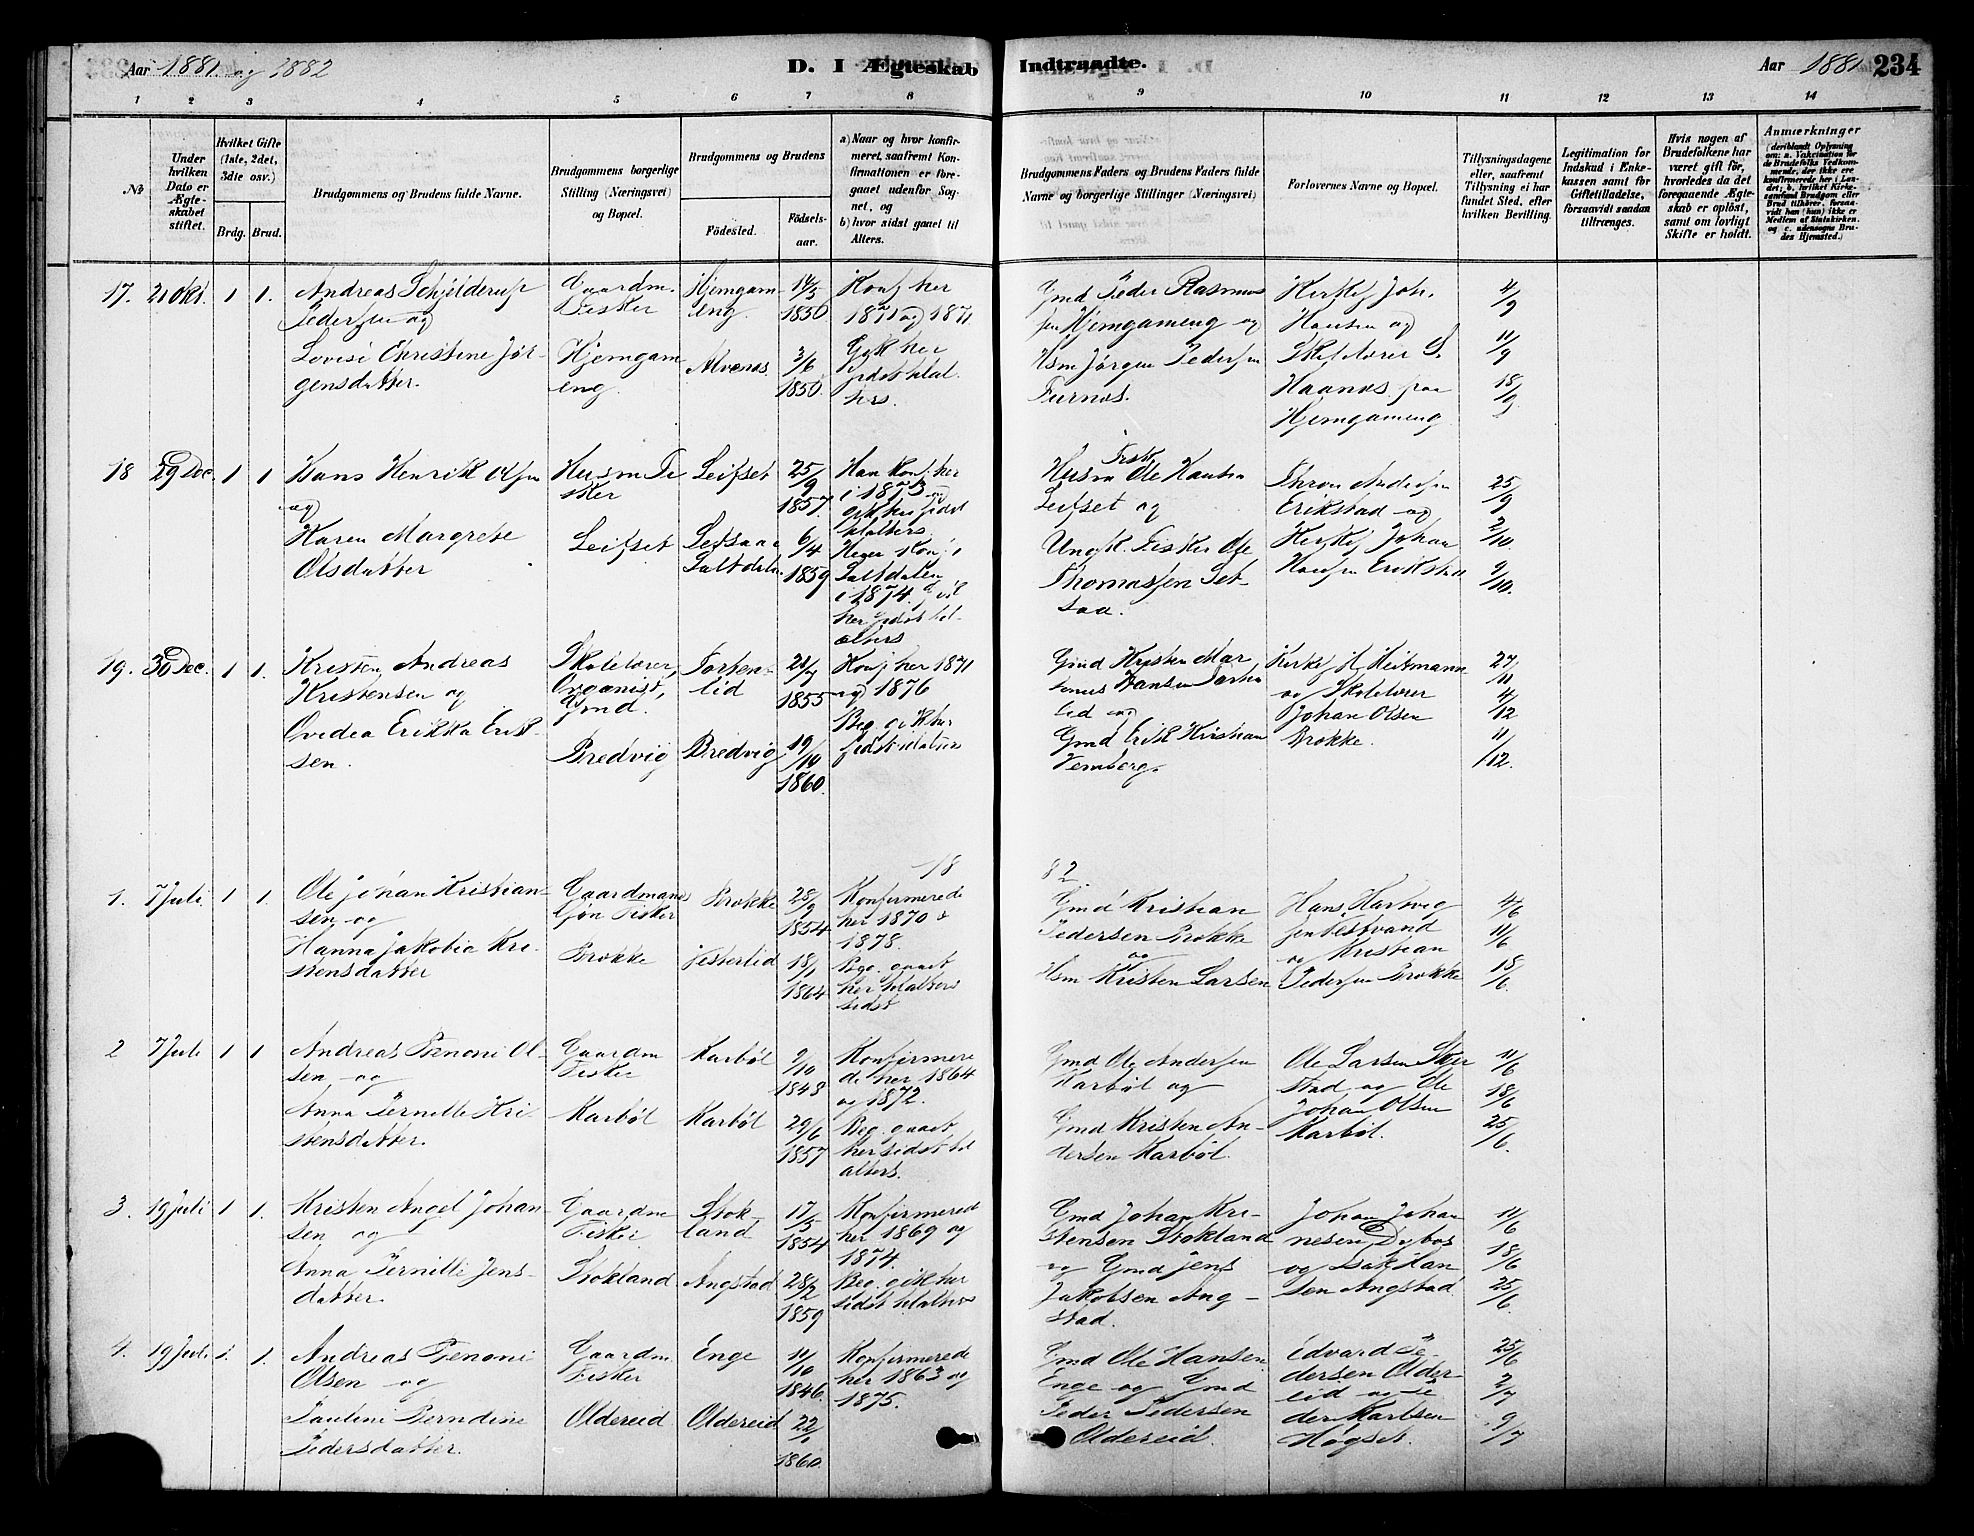 Aar 1881 og 1882
D. I Ægteskab Indtraadte.
Aar 1881
234
1 2 3 4 5 6 7 8 9 10 11 12 13 14
No
Under hvilken Dato er Ægteskabet stiftet.
Hvilket Gifte (1ste, 2det, 3dte osv.)
Brdg. Brud.
Brudgommens og Brudens fulde Navne.
Brudgommens borgerlige Stilling (Næringsvei) og Bopæl.
Brudgommens og Brudens
Födested.
Födselsaar.
a) Naar og hvor konfirmeret, saafremt Konfirmationen er foregaaet udenfor Sognet, og
b) hvor sidst gaaet til Alters.
Brudgommens Faders og Brudens Faders fulde Navne og borgerlige Stillinger (Næringsvei)
Forlovernes Navne og Bopæl.
Tillysningsdagene eller, saafremt Tillysning ei har fundet Sted, efter hvilken Bevilling.
Legitimation for Indskud i Enkekassen samt for Giftetilladelse, forsaavidt saadan tiltrænges.
Hvis nogen af Brudefolkene har været gift för, hvorledes da det foregaaende Ægteskab er oplöst, samt om lovligt Skifte er holdt.
Anmærkninger (deriblandt Oplysning om: a. Vakcination for de Brudefolks Vedkommende, der ikke ere konfirmerede her i Landet; b. hvilket Kirkesamfund Brudgom eller Brud tilhörer, forsaavidt han (hun) ikke er Medlem af Statskirken, og c. udensogns Brudes Hjemsted.)
17. 21 Okt. 1 1.
Andreas Schjelderup
Pedersen og
Lovise Christine Jør-
gensdatter.
Gaardm.
Fisker
Hjemgam
eng.
Hjemgam
eng.
Alvenes
14/3
1850
3/6
1850.
Konf her
1871 og 1871.
Gik her
sidst til al
ters.
Gmd Peder Rasmus
sen Hjemgameng og
Hsm Jörgen Pedersen
Furnes.
Kirkes Joh.
Hansen og
Skolelærer S.
Haanes paa
Hjemgameng
4/9
11/9
18/9
18 29 Dec. 1 1
Hans Henrik Olsen
og
Karen Margrete
Olsdatter
Husm Fi
sker
Leifset
Leifset
Setsaa
Saltdalen
25/9
1857.
6/4
1859
Han Konf. her
i 1873 og
gik her sidst
til alters.
Hego Konf. i
Saltdalen
i 1874. og
her sidst til
alters
Husm Fisk Ole Hansen
Leifset og
Ungk. Fisker Ole
Thomassen Set-
saa.
Thron Andersen
Erikstad og
Kirkes Johan
Hansen Erikstad
25/9
2/10
9/10.
19. 30 Dec. 1 1.
Kristen Andreas
Kristensen og
Ovedea Erikka Erik-
sen.
Skolelærer,
Organist,
Gmd.
Bredvig
Torten-
lid
Bredvig
21/7
1855
19/10
1860.
Konf her 1871
og 1876
Beg. gik her
sidst til alters
Gmd Kristen Mar
Hansen
lid og
Gmd Erik Kristian
Vemberg.
Kirkes M Heitmann
og Skolelærer
Johan Olsen
Brokke.
27/11
4/12
11/12.
18 82
1. 7 Juli. 1 1.
Ole Johan Kristian-
sen og
Hanna Jakobia Kri-
stensdatter
Gaardmands
Søn Fisker
Brokke
Brokke
Vesterlid
28/9
1854
18/1
1864
Konfirmerede
her 1870 &
1878.
Beg. gaaet
her til alters
sidst
Gmd Kristian
Pedersen Brokke
og
Hsm Kristen Larsen
Hans Hartvig
Jen Vestvand
og Kristian
Pedersen Brokke
4/6
11/6
18/6
2 7 Juli 1 1
Andreas Benoni Ol-
sen og
Anna Pernille Kri
stensdatter.
Gaardm
Fisker
Karbøl
Karbøl
Karbøl
9/10
1848
29/6
1857
Konfirmere
de her 1864
og 1872.
Beg. gaaet
her sidst til
alters.
Gmd Ole Andersen
Karbøl og
Gmd Kristen An-
dersen Karbøl.
Ole Larsen Skjer
stad og Ole
Johan Olsen
Karbøl.
11/6
18/6
25/6.
3. 19 Juli 1 1.
Kristen Angel Johan-
sen og
Anna Pernille Jens-
datter.
Gaardm
Fisker
Stokland
Stok-
land
Angstad
17/3
1854
28/2
1859
Konfirmered
her 1869 og
1874.
Beg. gik her
sidst til alters
Gmd Johan Kri-
stensen Stokland
og Gmd Jens
Jakobsen Ang-
stad.
Johan Johan
nesen Dybos
og Isak Han
sen Angstad
11/6
18/6
25/6
4. 19 Juli. 1. 1.
Andreas Benoni
Olsen og
Pauline Berndine
Pedersdatter.
Gaardm.
Fisker
Oldereid
Enge
Oldereid
11/10
1846.
22/1
1860.
Konfirmerede
her 1863 og
1875.
Gmd Ole Hansen
Enge og Gmd
Peder Pedersen
Oldereid.
Edvard Pe-
dersen Older
eid og Pe
der Karlsen
Høgset.
25/6
2/7
9/7